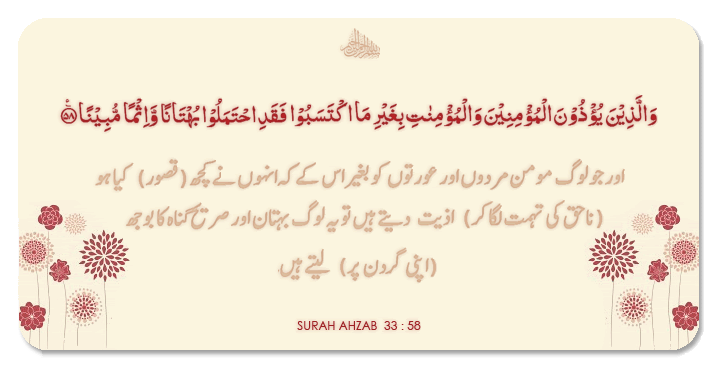 وَالَّذِيْنَ يُؤْذُوْنَ الْمُؤْمِنِيْنَ وَالْمُؤْمِنٰتِ بِغَيْرِ مَا اكْتَسَبُوْا فَقَدِ احْتَمَلُوْا بُهْتَانًا وَّاِثْمًا مُّبِيْنًا ﴿۵۸﴾
اور جو لوگ مومن مردوں اور عورتوں کو بغیر اس کے کہ انہوں نے کچھ (قصور) کیا ہو
(ناحق کی تہمت لگا کر) اذیت دیتے ہیں تو یہ لوگ بہتان اور صریح گناہ کا بوجھ
(اپنی گردن پر) لیتے ہیں
SURAH AHZAB 33 : 58